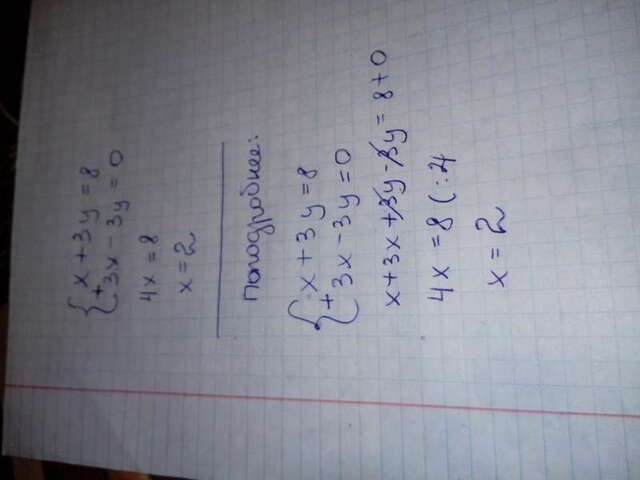 x + 3y = 8
+
3x - 3y = 0
4x = 8
x = 2
поподробнее:
x + 3y = 8
+
3x - 3y = 0
x + 3x + 3y - 3y = 8 + 0
4x = 8 (: 4
x = 2